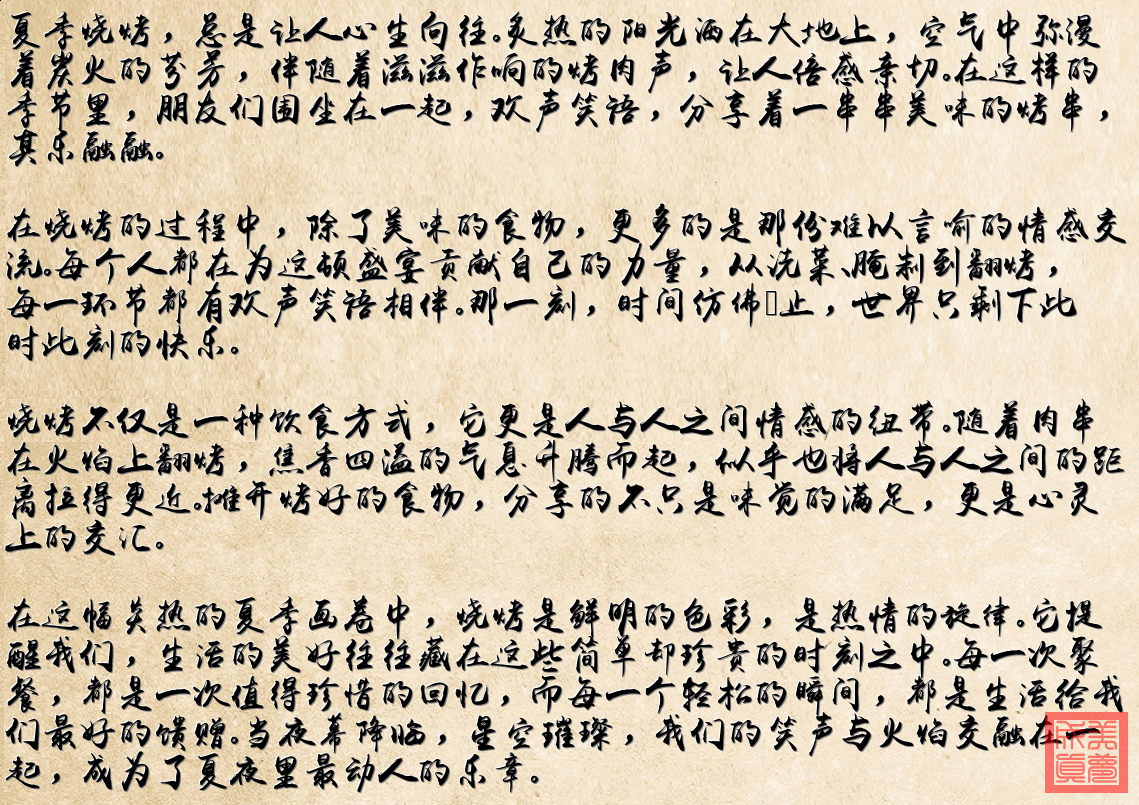 夏季烧烤，总是让人心生向往。炙热的阳光洒在大地上，空气中弥漫
着炭火的芬芳，伴随着滋滋作响的烤肉声，让人倍感亲切。在这样的
季节里，朋友们围坐在一起，欢声笑语，分享着一串串美味的烤串，
其乐融融。
在烧烤的过程中，除了美味的食物，更多的是那份难以言喻的情感交
流。每个人都在为这顿盛宴贡献自己的力量，从洗菜、腌制到翻烤，
每一环节都有欢声笑语相伴。那一刻，时间仿佛止，世界只剩下此
时此刻的快乐。
烧烤不仅是一种饮食方式，它更是人与人之间情感的纽带。随着肉串
在火焰上翻烤，焦香四溢的气息升腾而起，似乎也将人与人之间的距
离拉得更近。摊开烤好的食物，分享的不只是味觉的满足，更是心灵
上的交汇。
在这幅炎热的夏季画卷中，烧烤是鲜明的色彩，是热情的旋律。它提
醒我们，生活的美好往往藏在这些简单却珍贵的时刻之中。每一次聚
餐，都是一次值得珍惜的回忆，而每一个轻松的瞬间，都是生活给我
们最好的馈赠。当夜幕降临，星空璀璨，我们的笑声与火焰交融在一
起，成为了夏夜里最动人的乐章。
美梦成真